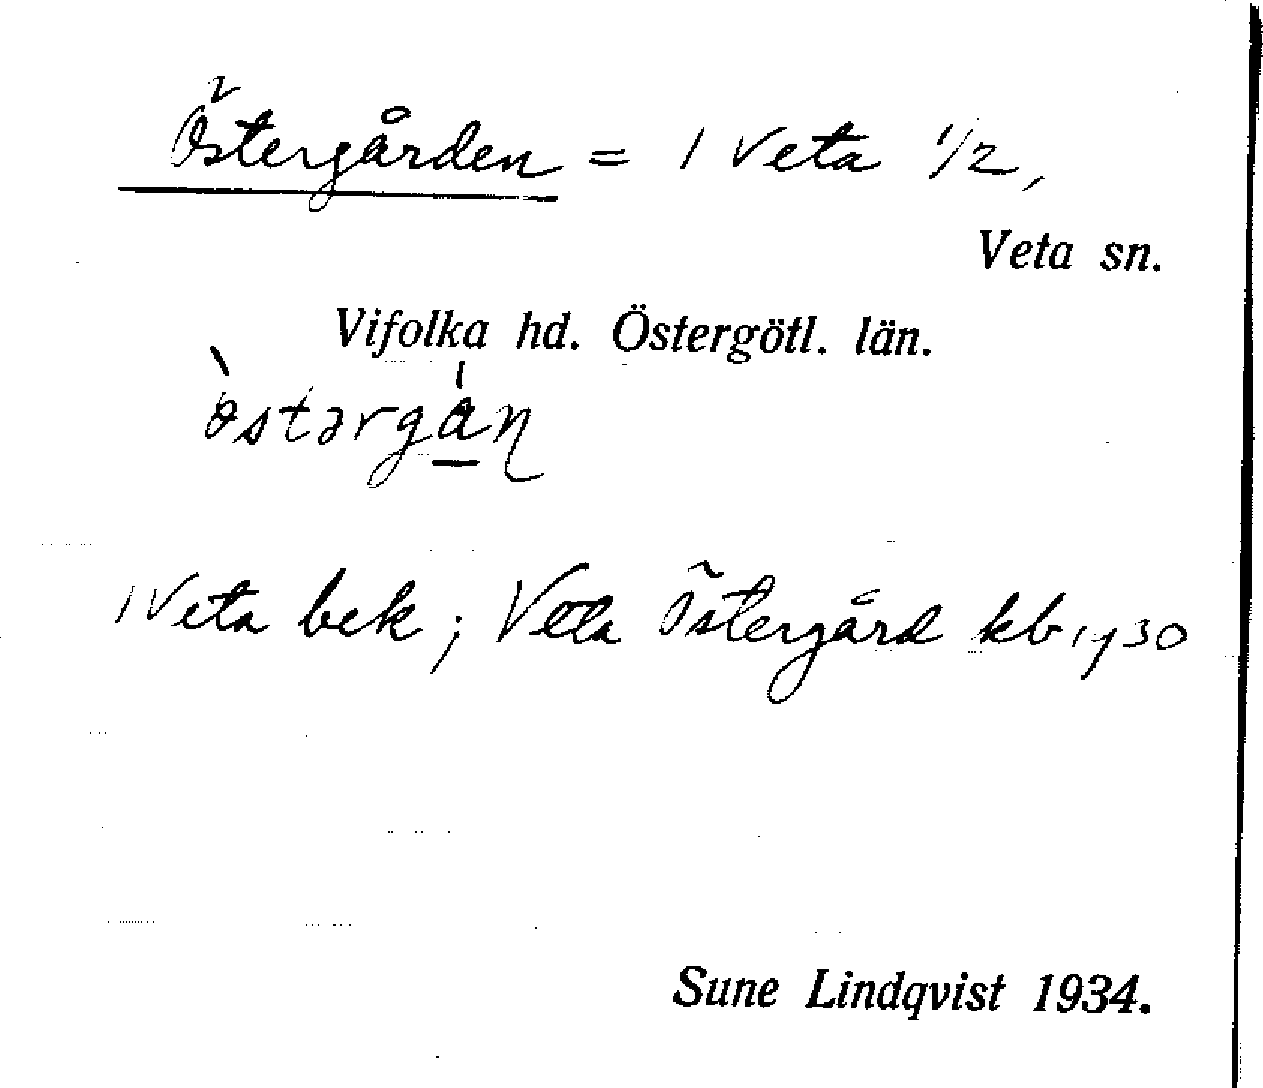 Östergården = 1 Veta 1/2,
Veta sn.
Vifolka hd. Östergötl. län.
ò̀stərgá̱ɳ
1 Veta bek; Veta Östergård kb 1730
Sune Lindqvist 1934.